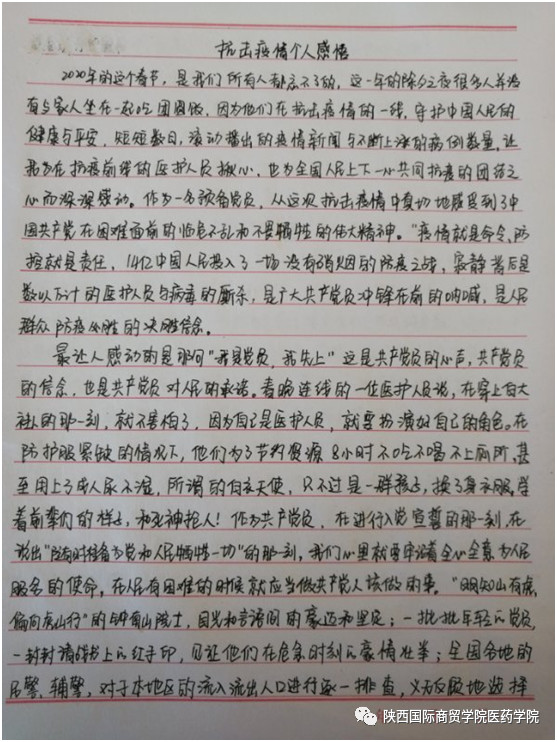 抗击疫情个人感悟
2020年的这个春节，是我们所有人都忘不了的，这一年的除夕之夜很多人并没
有与家人坐在一起吃团圆饭，因为他们在抗击疫情的一线，守护中国人民的
健康与平安，短短数日，滚动播出的疫情新闻与不断上涨的病例数量，让
我为在抗疫前线的医护人员揪心，也为全国人民上下一心共同抗疫的团结之
心而深深感动。作为一名预备党员，从这次抗击疫情中真切地感受到了中
国共产党在困难面前的临危不乱和不畏牺牲的伟大精神。“疫情就是命令，防
控就是责任，14亿中国人民投入了一场没有硝烟的防疫之战，寂静背后是
数以万计的医护人员与病毒的厮杀，是广大共产党员冲锋在前的呐喊，是人民
群众防疫必胜的决胜信念。
最让人感动的是那句“我是党员，我先上”这是共产党员的心声，共产党员
的信念，也是共产党员对人民的承诺。春晚连线的一位医护人员说，在穿上白大
褂的那一刻，就不害怕了，因为自己是医护人员，就要扮演好自己的角色。在
防护服紧缺的情况下，他们为了节约资源8小时不吃不喝不上厕所，甚
至用上了成人尿不湿，所谓的白衣天使，只不过是一群孩子，换了身衣服，学
着前辈们的样子，和死神抢人！作为共产党员，在进行入党宣誓的那一刻，在
说出“随时准备为党和人民牺牲一切”的那一刻，我们心里就要牢记着全心全意为人民
服务的使命，在人民有困难的时候就应当做共产党人该做的事。“明知山有虎，
偏向虎山行”的钟南山院士，目光和言语间的豪迈和坚定；一批批年轻的党员，
一封封请战书上的红手印，见证他们在危急时刻的豪情壮举；全国各地的
民警，辅警，对于本地区的流入流出人口进行逐一排查，义无反顾地选择
陕西国际商贸学院医药学院